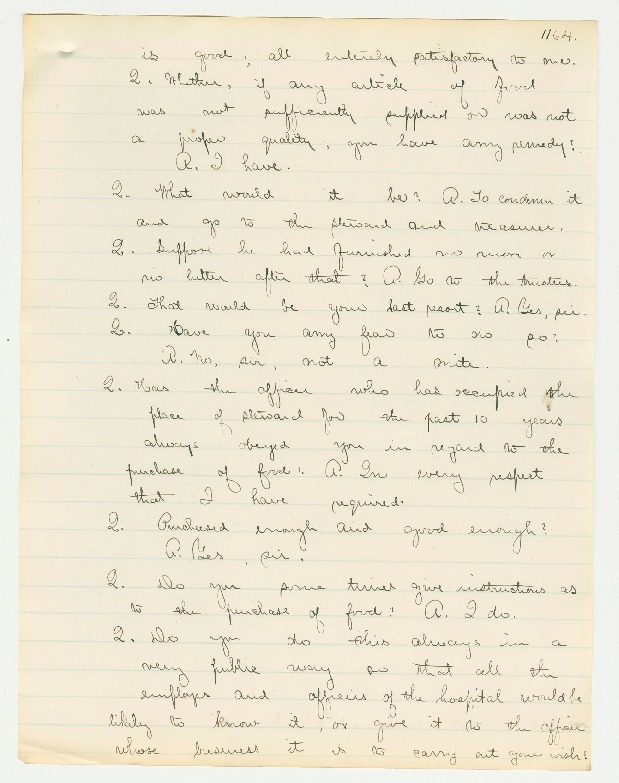 1164.
is good, all entirely satisfactory to me.
Q. Whether, if any article of food
was not sufficiently supplied or was not
a proper quality, you have any remedy?
A. I have.
Q. What would it be? A. To condemn it
and go to the steward and treasurer.
Q. Suppose he had furnished no more or
no better after that? A. Go to the trustees.
Q. That would be your last resort? A. Yes, sir.
Q. Have you any fear to do so?
A. No, sir, not a mite.
Q. Has the officer who has occupied the
place of steward for the past 10 years
always obeyed you in regard to the
purchase of food? A. In every respect
that I have required.
Q. Purchased enough and good enough?
A. Yes, sir.
Q. Do you some times give instructions as
to the purchase of food? A. I do.
Q. Do you do this always in a
very public way so that all the
employs and officers of the hospital would be
likely to know it, or give it to the officer
whose business it is to carry out your wish?